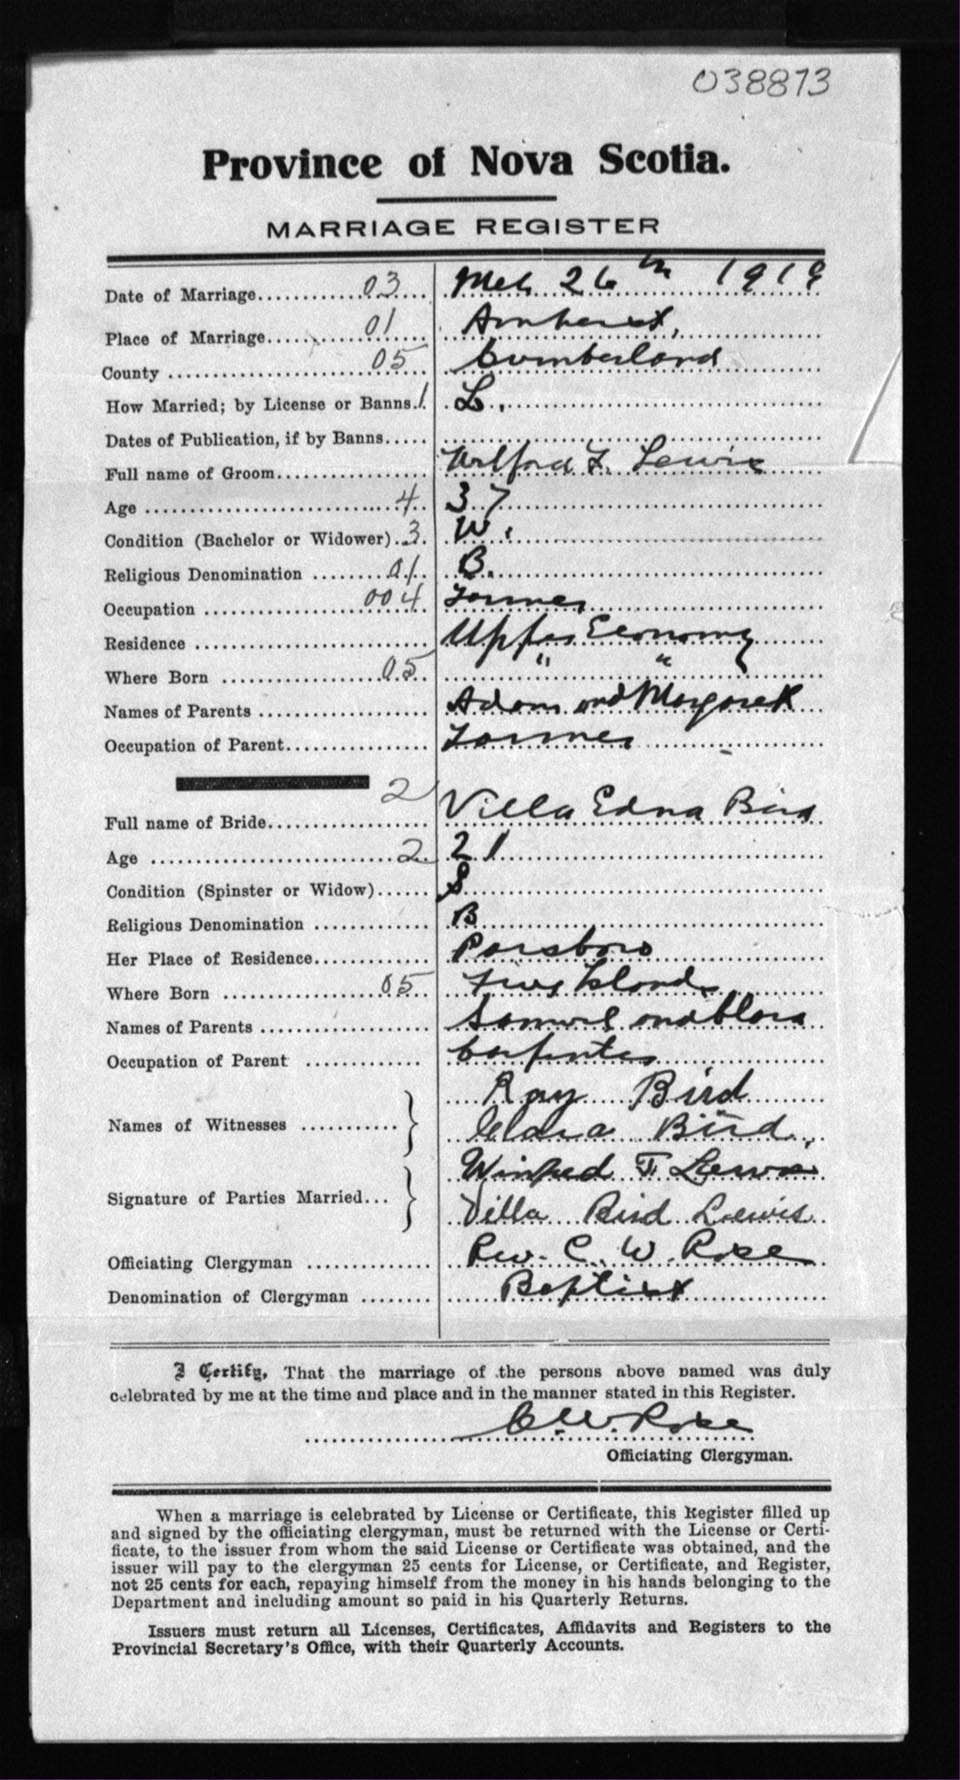 038873
Province of Nova Scotia.
MARRIAGE REGISTER
Date of Marriage............03.... Mch 26th 1919
Place of Marriage............01.... Amherst,
County ............05.... Cumberland
How Married; by License or Banns.1. L.
Dates of Publication, if by Banns.....
Full name of Groom................ Wilfred F. Lewis
Age ............4.. 37
Condition (Bachelor or Widower)..3. W.
Religious Denomination ........01.. B.
Occupation ............004.. Farmer
Residence ............ Upper Economy
Where Born ............05.. " "
Names of Parents ............ Adam and Margaret
Occupation of Parent............ Farmer
2
Full name of Bride............ Villa Edna Bird
Age ............2.. 21
Condition (Spinster or Widow)...... S
Religious Denomination ............ B
Her Place of Residence............ Parsboro
Where Born ............05.. Five Islands
Names of Parents ............ Samuel and Clara
Occupation of Parent ............ Carpenter
Ray Bird
Names of Witnesses ...........
Clara Bird,
F Lewis
Signature of Parties Married...
Villa Bird Lewis
Officiating Clergyman ............ Rev. C. W. Rose
Denomination of Clergyman ........ Baptist
I Certify, That the marriage of the persons above named was duly
celebrated by me at the time and place and in the manner stated in this Register.
C. W. Rose
Officiating Clergyman.
When a marriage is celebrated by License or Certificate, this Register filled up
and signed by the officiating clergyman, must be returned with the License or Certi-
ficate, to the issuer from whom the said License or Certificate was obtained, and the
issuer will pay to the clergyman 25 cents for License, or Certificate, and Register,
not 25 cents for each, repaying himself from the money in his hands belonging to the
Department and including amount so paid in his Quarterly Returns.
Issuers must return all Licenses, Certificates, Affidavits and Registers to the
Provincial Secretary's Office, with their Quarterly Accounts.